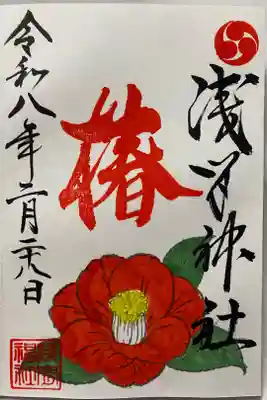 浅間神社
椿
令和八年二月二八日